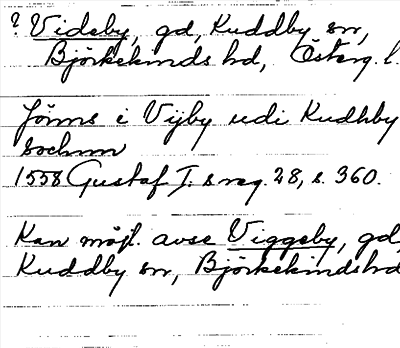 ? Videby, gd, Kuddby sn,
Björkekinds hd, Österg. l.
Jöns i Vijby udi Kudhby
sochnn
1558 Gustaf I:s reg. 28, s. 360.
Kan möjl. avse Viggeby, gd,
Kuddby sn, Björkekinds hd